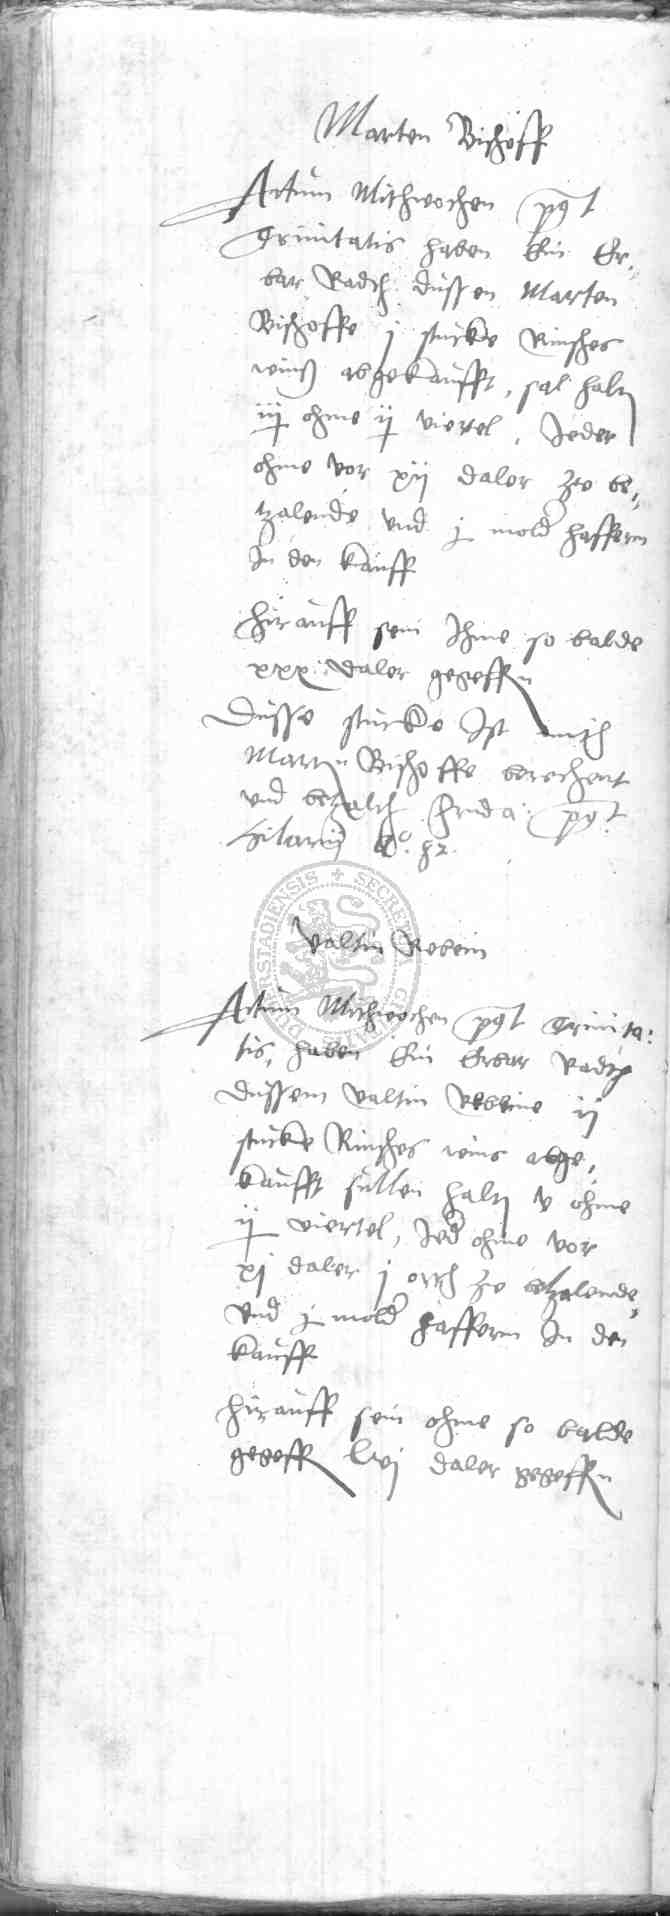 Marten Bischoff
Actum Mithwochen post
Trinitatis haben Ein Er-
bar Radth dussen Marten
Bischoffe j stucke Rinsches
weinß abgekaufft, sal halten
iij ohme ij viertel, Jeder
ohme vor xij daler zce be,,
tzalende vnd j mold haffern
In den kauff
hirauff sein Ihme so balde
xxx daler gegeffen
Dusse stucke Ist mith
Marten Bischoffe berechent
vnd betzalth frida: post
Hilarij Ao. 
Valtin Rebein
Actum Mithwochen post Trinita:
tis, haben Ein Erbar Radth
dussem Valtin Rebeine ij
stucke Rinsches weins abge,,
kaufft sullen halten v ohme
ij viertel, Jed ohme vor
xj daler j orth zce betzalende,,
vnd j mold haffern In den
kauff
hirauff sein ohme so balde
gegeff lvj daler gegeffen
DUDERSTADIENSIS + SECRETVM